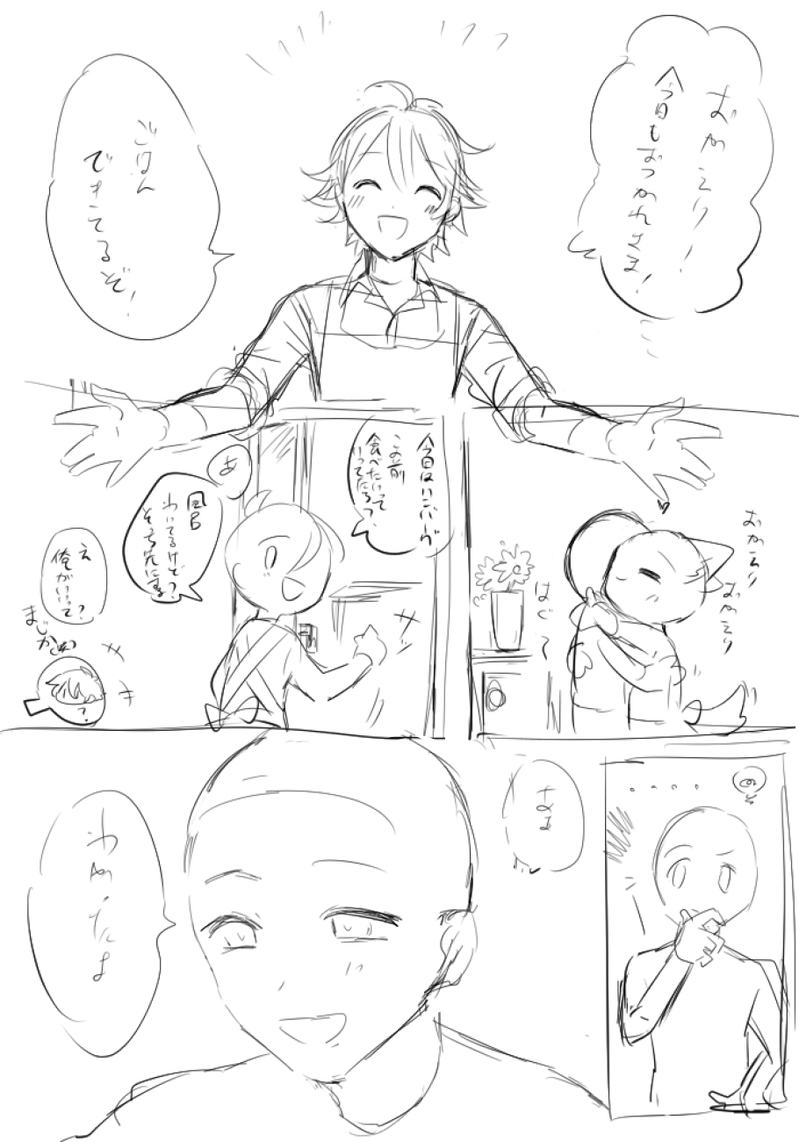 おかえりー!
今日もおつかれさま!
ごはん
できてるぞ!
おかえり
おかえり
はぐ〜
今日はハンバーグ
この前
食べたいって
いってたろ?
あ
風呂
わいてるけど
え
俺がいって?
まじかw
?
なぁ
わかったよ